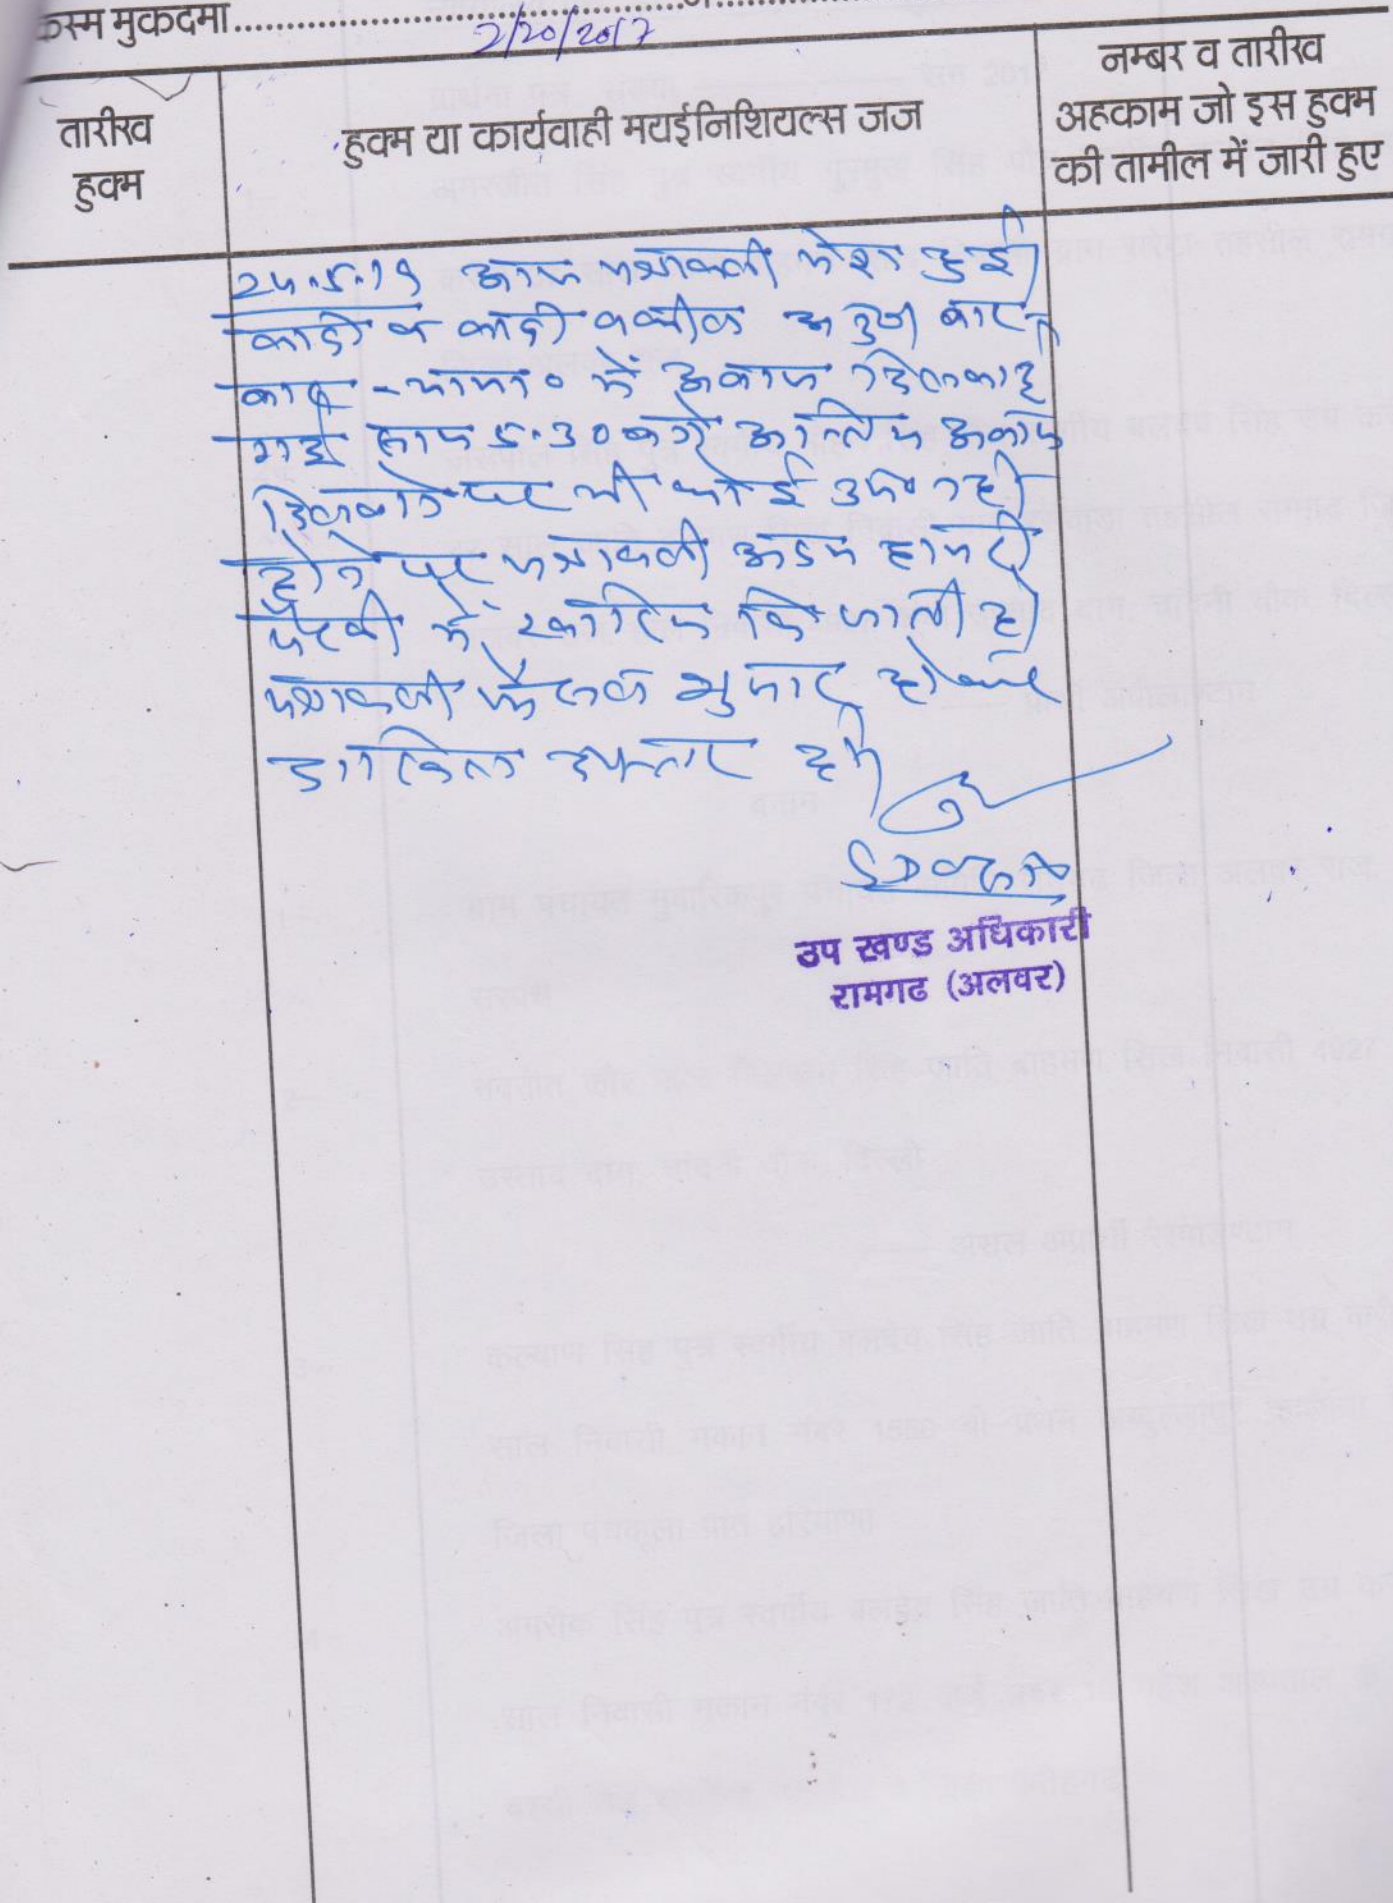 किस्म मुकदमा
2/20/2017
तारीख हुक्म
हुक्म या कार्यवाही मयईनिशियल्स जज
नम्बर व तारीख
अहकाम जो इस हुक्म
की तामील में जारी हुए
24.5.19 आज पत्रावली पेश हुई
वादी व वादी वकील अनु० बार
बार में आवाज दिलवाई
गई साय 5.30 बजे अन्तिम आवाज
दिलवाने पर भी कोई उप० नही
होने पर पत्रावली अदम हाजरी
पैरवी में खारिज कि जाती है।
पत्रावली फैसल शुमार होकर
दाखिल दफ्तर हो।
उप खण्ड अधिकारी
रामगढ (अलवर)